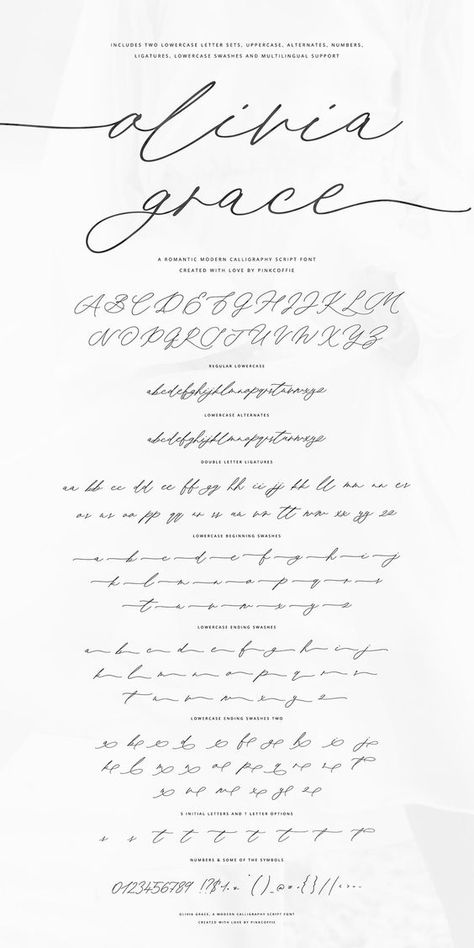 INCLUDES TWO LOWERCASE LETTER SETS, UPPERCASE, ALTERNATES, NUMBERS,
LIGATURES, LOWERCASE SWASHES AND MULTILINGUAL SUPPORT
olivia
grace
A ROMANTIC MODERN CALLIGRAPHY SCRIPT FONT
CREATED WITH LOVE BY PINKCOFFIE
ABCDEFGHIJKLM
NOPQRSTUVWXYZ
REGULAR LOWERCASE
abcdefghijklmnopqrstuvwxyz
LOWERCASE ALTERNATES
abcdefghijklmnopqrstuvwxyz
DOUBLE LETTER LIGATURES
aa bb cc dd ee ff gg hh ii jj kk ll mm nn er
or us oo pp qq rr ss uu vv tt ww xx yy zz
LOWERCASE BEGINNING SWASHES
a b c d e f g h i j
k l m n o p q r s
t u v w x y z
LOWERCASE ENDING SWASHES
a b c d e f g h i j
k l m n o p q r s
t u v w x y z
LOWERCASE ENDING SWASHES TWO
a b c d e f g h i j
k l m n o p q r s t
u v w x y z
S INITIAL LETTERS AND T LETTER OPTIONS
s s t t t t t t t
NUMBERS & SOME OF THE SYMBOLS
0123456789
OLIVIA GRACE, A MODERN CALLIGRAPHY SCRIPT FONT
CREATED WITH LOVE BY PINKCOFFIE